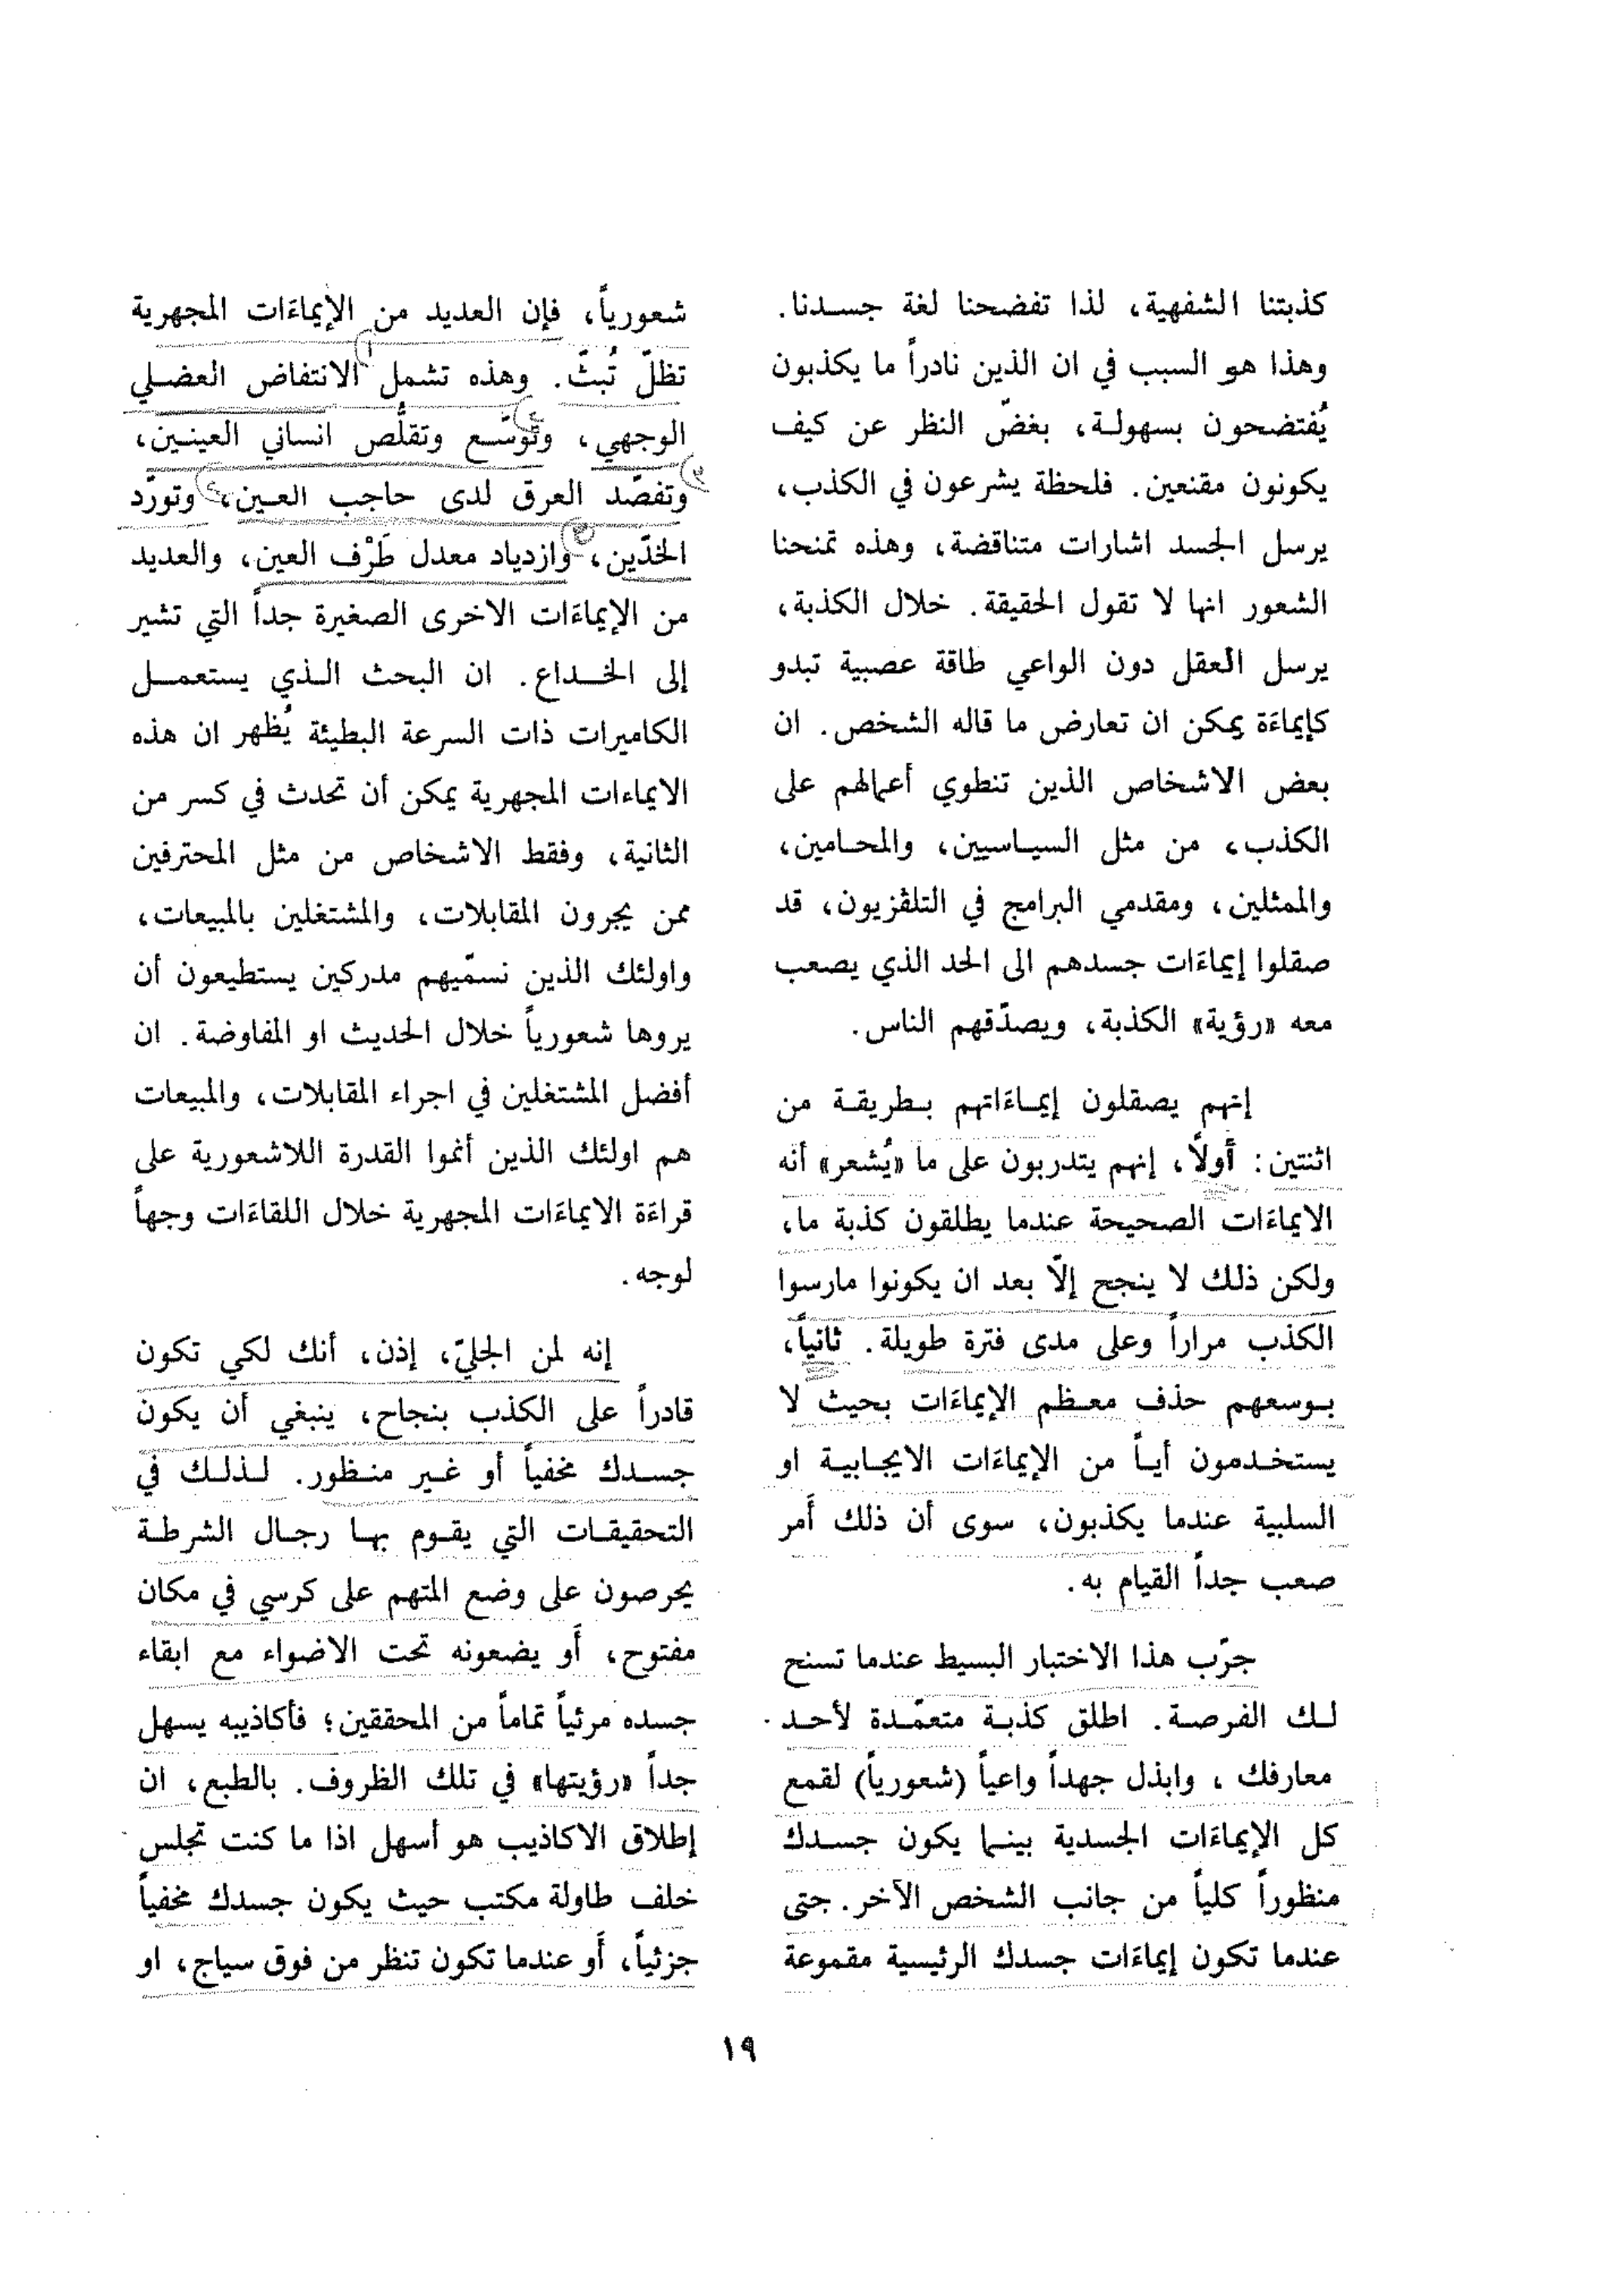 كذبتنا الشفهية، لذا تفضحنا لغة جسدنا.
وهذا هو السبب في ان الذين نادراً ما يكذبون
يُفتضحون بسهولة، بغضّ النظر عن كيف
يكونون مقنعين. فلحظة يشرعون في الكذب،
يرسل الجسد اشارات متناقضة، وهذه تمنحنا
الشعور انها لا تقول الحقيقة. خلال الكذبة،
يرسل العقل دون الواعي طاقة عصبية تبدو
كإيماءَة يمكن ان تعارض ما قاله الشخص. ان
بعض الاشخاص الذين تنطوي أعمالهم على
الكذب، من مثل السياسيين، والمحامين،
والممثلين، ومقدمي البرامج في التلفزيون، قد
صقلوا إيماءَات جسدهم الى الحد الذي يصعب
معه «رؤية» الكذبة، ويصدّقهم الناس.
إنهم يصقلون إيماءَاتهم بطريقة من
اثنتين: أَولاً، إنهم يتدربون على ما «يُشعر» أنه
الايماءَات الصحيحة عندما يطلقون كذبة ما،
ولكن ذلك لا ينجح إلاّ بعد ان يكونوا مارسوا
الكذب مراراً وعلى مدى فترة طويلة. ثانياً،
بوسعهم حذف معظم الإيماءَات بحيث لا
يستخدمون أياً من الإيماءَات الايجابية او
السلبية عندما يكذبون، سوى أن ذلك أَمر
صعب جداً القيام به.
جرّب هذا الاختبار البسيط عندما تسنح
لك الفرصة. اطلق كذبة متعمّدة لأحد
معارفك، وابذل جهداً واعياً (شعورياً) لقمع
كل الإيماءَات الجسدية بينما يكون جسدك
منظوراً كلياً من جانب الشخص الآخر. حتى
عندما تكون إيماءَات جسدك الرئيسية مقموعة
شعورياً، فإن العديد من الإيماءَات المجهرية
تظلّ تُبثّ. وهذه تشمل الانتفاض العضلي
الوجهي، وتوسّع وتقلّص انساني العينين،
وتفصّد العرق لدى حاجب العين، وتورّد
الخدّين، وازدياد معدل طَرْف العين، والعديد
من الإيماءَات الاخرى الصغيرة جداً التي تشير
إلى الخداع. ان البحث الذي يستعمل
الكاميرات ذات السرعة البطيئة يُظهر ان هذه
الايماءات المجهرية يمكن أن تحدث في كسر من
الثانية، وفقط الاشخاص من مثل المحترفين
ممن يجرون المقابلات، والمشتغلين بالمبيعات،
واولئك الذين نسمّيهم مدركين يستطيعون أن
يروها شعورياً خلال الحديث او المفاوضة. ان
أفضل المشتغلين في اجراء المقابلات، والمبيعات
هم اولئك الذين أنموا القدرة اللاشعورية على
قراءَة الايماءَات المجهرية خلال اللقاءَات وجهاً
لوجه.
إنه لمن الجليّ، إذن، أنك لكي تكون
قادراً على الكذب بنجاح، ينبغي أن يكون
جسدك مخفياً أو غير منظور. لذلك في
التحقيقات التي يقوم بها رجال الشرطة
يحرصون على وضع المتهم على كرسي في مكان
مفتوح، أَو يضعونه تحت الاضواء مع ابقاء
جسده مرئياً تماماً من المحققين؛ فأكاذيبه يسهل
جداً «رؤيتها» في تلك الظروف. بالطبع، ان
إطلاق الاكاذيب هو أسهل اذا ما كنت تجلس
خلف طاولة مكتب حيث يكون جسدك مخفياً
جزئياً، أَو عندما تكون تنظر من فوق سياج، او
١٩